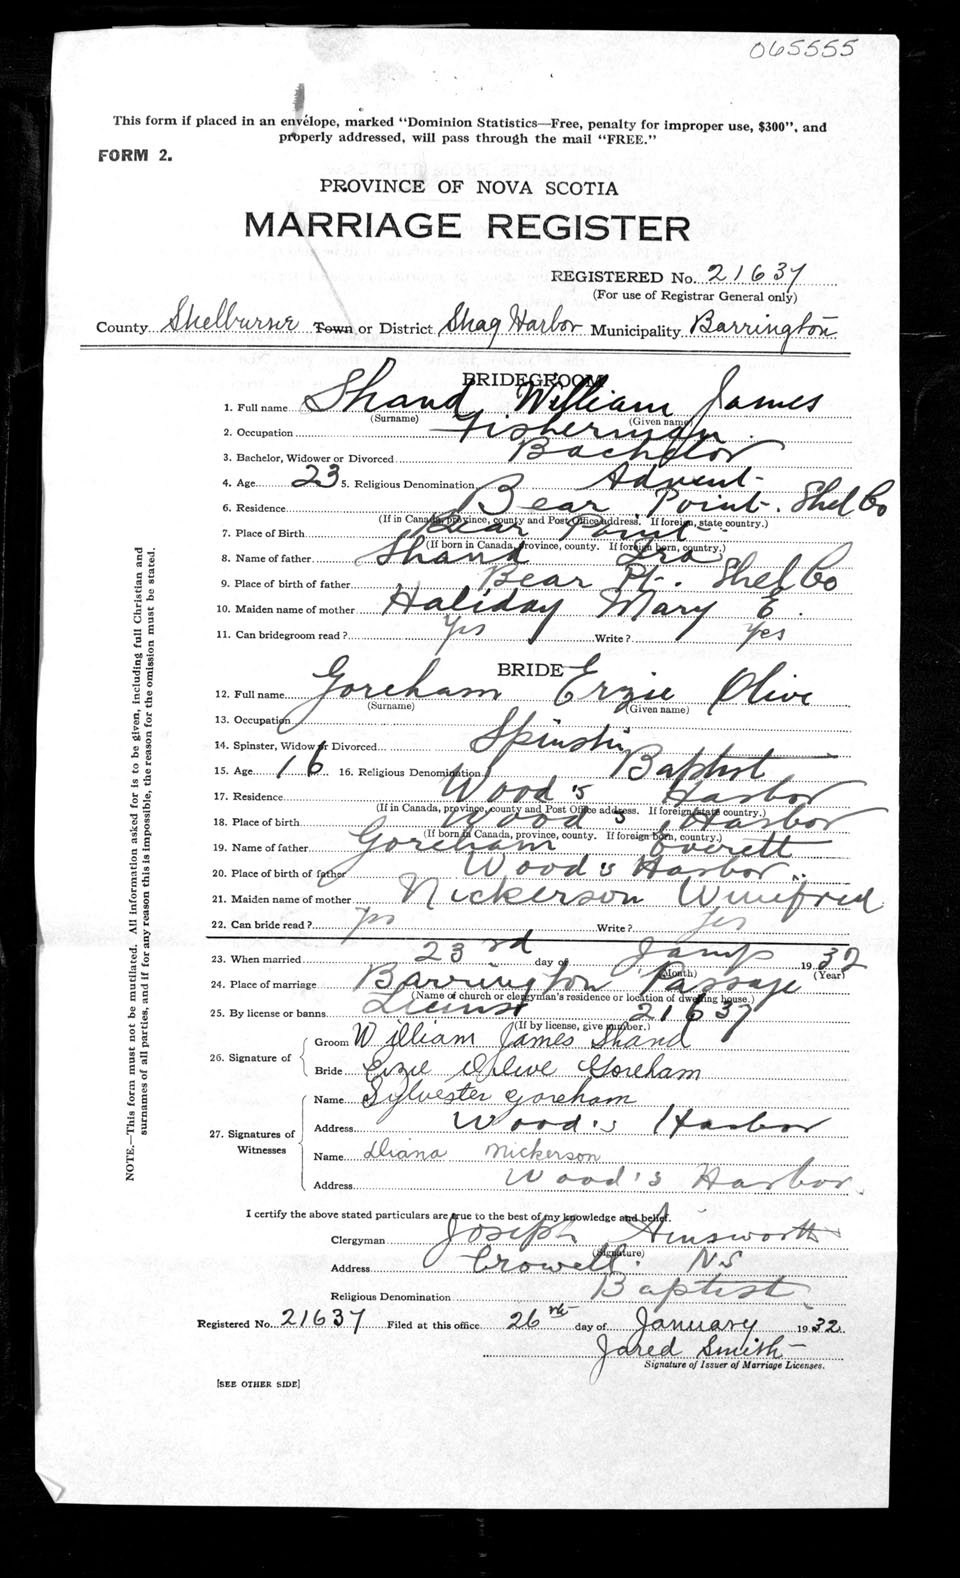 065555
This form if placed in an envelope, marked "Dominion Statistics—Free, penalty for improper use, $300", and
properly addressed, will pass through the mail "FREE."
FORM 2.
PROVINCE OF NOVA SCOTIA
MARRIAGE REGISTER
REGISTERED No. 21637
(For use of Registrar General only)
County Shelburne Town or District Shag Harbor Municipality Barrington
BRIDEGROOM
1. Full name Shand William James
(Surname) (Given name)
2. Occupation Fisherman
3. Bachelor, Widower or Divorced Bachelor
4. Age 23 5. Religious Denomination Advent
6. Residence Bear Point. Shel Co
(If in Canada, province, county and Post Office address. If foreign, state country.)
7. Place of Birth Bear Point
(If born in Canada, province, county. If foreign born, country.)
8. Name of father Shand Ira
9. Place of birth of father Bear Pt. Shel Co
10. Maiden name of mother Haliday Mary E.
11. Can bridegroom read? Yes Write? Yes
BRIDE
12. Full name Goreham Erzie Olive
(Surname) (Given name)
13. Occupation
14. Spinster, Widow or Divorced Spinster
15. Age 16 16. Religious Denomination Baptist
17. Residence Wood's Harbor
(If in Canada, province, county and Post Office address. If foreign, state country.)
18. Place of birth Wood's Harbor
(If born in Canada, province, county. If foreign born, country.)
19. Name of father Goreham Everett
20. Place of birth of father Wood's Harbor
21. Maiden name of mother Nickerson Winifred
22. Can bride read? Yes Write? Yes
23. When married 23rd day of 1932
(Month) (Year)
24. Place of marriage Barrington Passage
(Name of church or clergyman's residence or location of dwelling house.)
25. By license or banns License 21637
(If by license, give number.)
26. Signature of
Groom William James Shand
Bride Erzie Olive Goreham
27. Signatures of Witnesses
Name Sylvester Goreham
Address Wood's Harbor
Name Diana Nickerson
Address Wood's Harbor
I certify the above stated particulars are true to the best of my knowledge and belief.
Clergyman Joseph Ainsworth
(Signature)
Address Crowell. N.S
Religious Denomination Baptist
Registered No. 21637 Filed at this office 26th day of January 1932
Jared Smith
Signature of Issuer of Marriage Licenses.
[SEE OTHER SIDE]
NOTE.—This form must not be mutilated. All information asked for is to be given, including full Christian and
surnames of all parties, and if for any reason this is impossible, the reason for the omission must be stated.